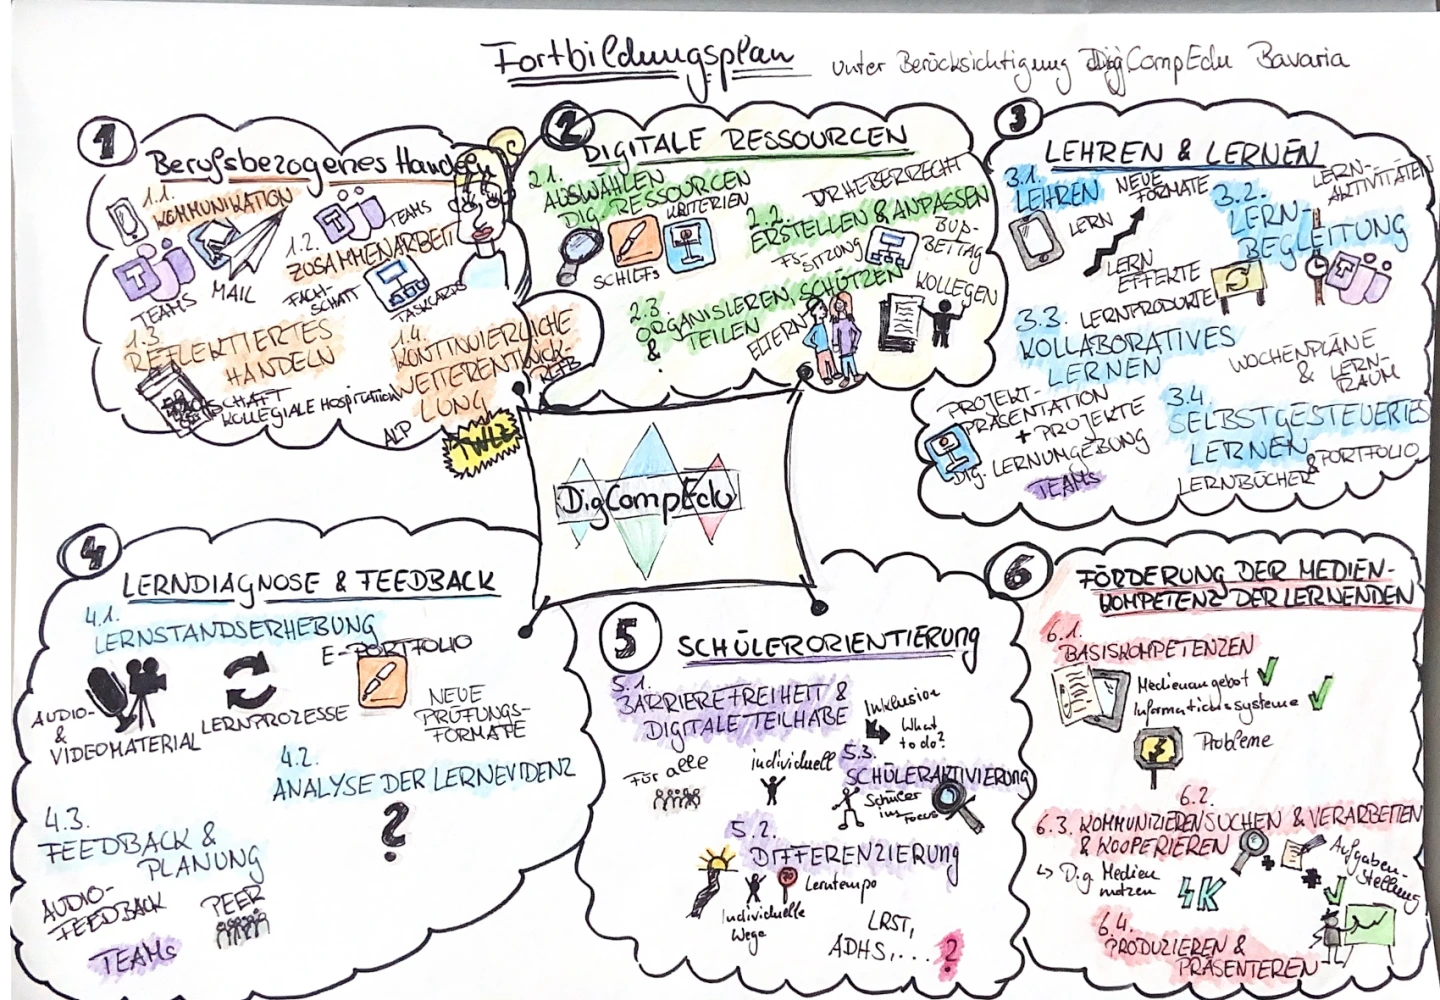 Fortbildungsplan unter Berücksichtigung DigCompEdu Bavaria
1
Berufsbezogenes Handeln
1.1.
KOMMUNIKATION
TEAMS
MAIL
1.2.
TEAMS
ZUSAMMENARBEIT
FACH-
SCHAFT
TASKCARDS
1.3
REFLEKTIERTES
HANDELN
KOLLEGIALE HOSPITATION
1.4.
KONTINUIERLICHE
WEITERENTWICK-
LUNG
ALP
2
DIGITALE RESSOURCEN
2.1.
AUSWÄHLEN
DIG. RESSOURCEN
KRITERIEN
SCHILFs
URHEBERRECHT
2.2.
ERSTELLEN & ANPASSEN
FS-
SITZUNG
BUß-
BETTAG
2.3
ORGANISIEREN, SCHÜTZEN
& TEILEN
ELTERN
KOLLEGEN
3
LEHREN & LERNEN
3.1.
LEHREN
NEUE
FORMATE
LERN
LERN
EFFEKTE
3.2.
LERN-
BEGLEITUNG
LERN-
AKTIVITÄTEN
LERNPRODUKTE
3.3.
KOLLABORATIVES
LERNEN
WOCHENPLÄNE
& LERN-
RAUM
PROJEKT-
PRÄSENTATION
+ PROJEKTE
DIG. LERNUMGEBUNG
TEAMs
3.4.
SELBSTGESTEUERTES
LERNEN
LERNBÜCHER & PORTFOLIO
DigCompEdu
4
LERNDIAGNOSE & FEEDBACK
4.1.
LERNSTANDSERHEBUNG
AUDIO-
&
VIDEOMATERIAL
LERNPROZESSE
E-PORTFOLIO
NEUE
PRÜFUNGS-
FORMATE
4.2.
ANALYSE DER LERNEVIDENZ
?
4.3.
FEEDBACK &
PLANUNG
AUDIO-
FEEDBACK
PEER
TEAMs
5
SCHÜLERORIENTIERUNG
5.1.
BARRIEREFREIHEIT &
DIGITALE TEILHABE
Inklusion
What
to do?
Für alle
individuell
5.3.
SCHÜLERAKTIVIERUNG
Schüler
im Focus
5.2.
DIFFERENZIERUNG
Individuelle
Wege
Lerntempo
LRST,
ADHS,... ?
6
FÖRDERUNG DER MEDIEN-
KOMPETENZ DER LERNENDEN
6.1.
BASISKOMPETENZEN
Medienangebot
Informationssysteme
Probleme
6.2.
SUCHEN & VERARBEITEN
Aufgaben-
Stellung
6.3. KOMMUNIZIEREN
& KOOPERIEREN
Dig Medien
nutzen
4K
6.4.
PRODUZIEREN &
PRÄSENTIEREN